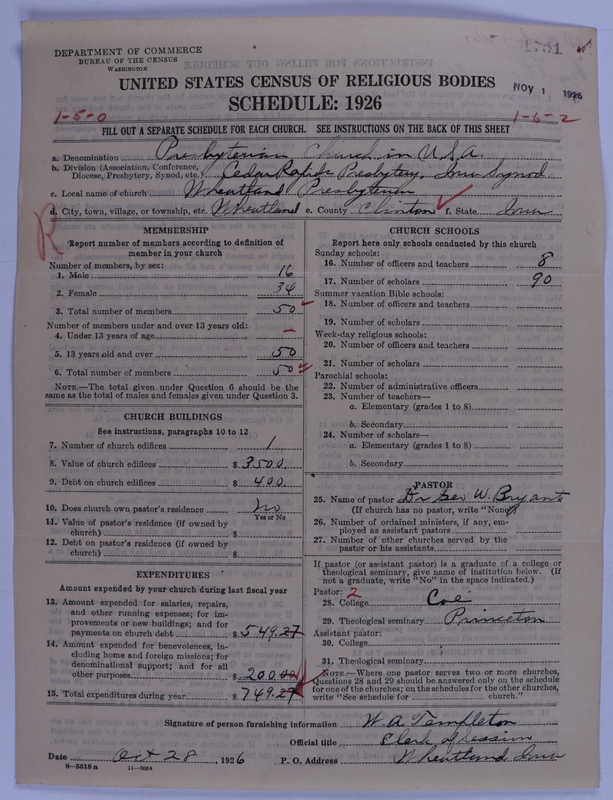 DEPARTMENT OF COMMERCE
BUREAU OF THE CENSUS
WASHINGTON
1761
UNITED STATES CENSUS OF RELIGIOUS BODIES
SCHEDULE: 1926
NOV 1 1926
1-5-0
1-6-2
FILL OUT A SEPARATE SCHEDULE FOR EACH CHURCH. SEE INSTRUCTIONS ON THE BACK OF THIS SHEET
a. Denomination Presbyterian Church in U.S.A.
b. Division (Association, Conference, Diocese, Presbytery, Synod, etc.) Cedar Rapids Presbytery, Iowa Synod
c. Local name of church Wheatland Presbyterian
d. City, town, village, or township, etc. Wheatland e. County Clinton f. State Iowa
R
MEMBERSHIP
Report number of members according to definition of
member in your church
Number of members, by sex:
1. Male 16
2. Female 34
3. Total number of members 50
Number of members under and over 13 years old:
4. Under 13 years of age —
5. 13 years old and over 50
6. Total number of members 50
NOTE.—The total given under Question 6 should be
same as the total of males and females given under Question 3.
CHURCH BUILDINGS
See instructions, paragraphs 10 to 12
7. Number of church edifices 1
8. Value of church edifices $ 3500.
9. Debt on church edifices $ 400.
10. Does church own pastor's residence No
Yes or No
11. Value of pastor's residence (if owned by
church) $
12. Debt on pastor's residence (if owned by
church) $
EXPENDITURES
Amount expended by your church during last fiscal year
13. Amount expended for salaries, repairs,
and other running expenses; for im-
provements or new buildings; and for
payments on church debt $ 549.27
14. Amount expended for benevolences, in-
cluding home and foreign missions; for
denominational support; and for all
other purposes 200.00
15. Total expenditures during year $ 749.27
CHURCH SCHOOLS
Report here only schools conducted by this church
Sunday schools:
16. Number of officers and teachers 8
17. Number of scholars 90
Summer vacation Bible schools:
18. Number of officers and teachers
19. Number of scholars
Week-day religious schools:
20. Number of officers and teachers
21. Number of scholars
Parochial schools:
22. Number of administrative officers
23. Number of teachers—
a. Elementary (grades 1 to 8)
b. Secondary
24. Number of scholars—
a. Elementary (grades 1 to 8)
b. Secondary
PASTOR
25. Name of pastor Dr Geo W. Bryant
(If church has no pastor, write "None")
26. Number of ordained ministers, if any, em-
ployed as assistant pastors
27. Number of other churches served by the
pastor or his assistants
If pastor (or assistant pastor) is a graduate of a college or
theological seminary, give name of institution below. (If
not a graduate, write "No" in the space indicated.)
Pastor: 2
28. College Coe
29. Theological seminary Princeton
Assistant pastor:
30. College
31. Theological seminary
NOTE.—Where one pastor serves two or more churches,
Questions 28 and 29 should be answered only on the schedule
for one of the churches; on the schedules for the other churches,
write "See schedule for church."
Signature of person furnishing information W. A. Templeton
Official title Clerk of Session
Date Oct 28, 1926 P. O. Address Wheatland Iowa
8-5318 a 11-9054